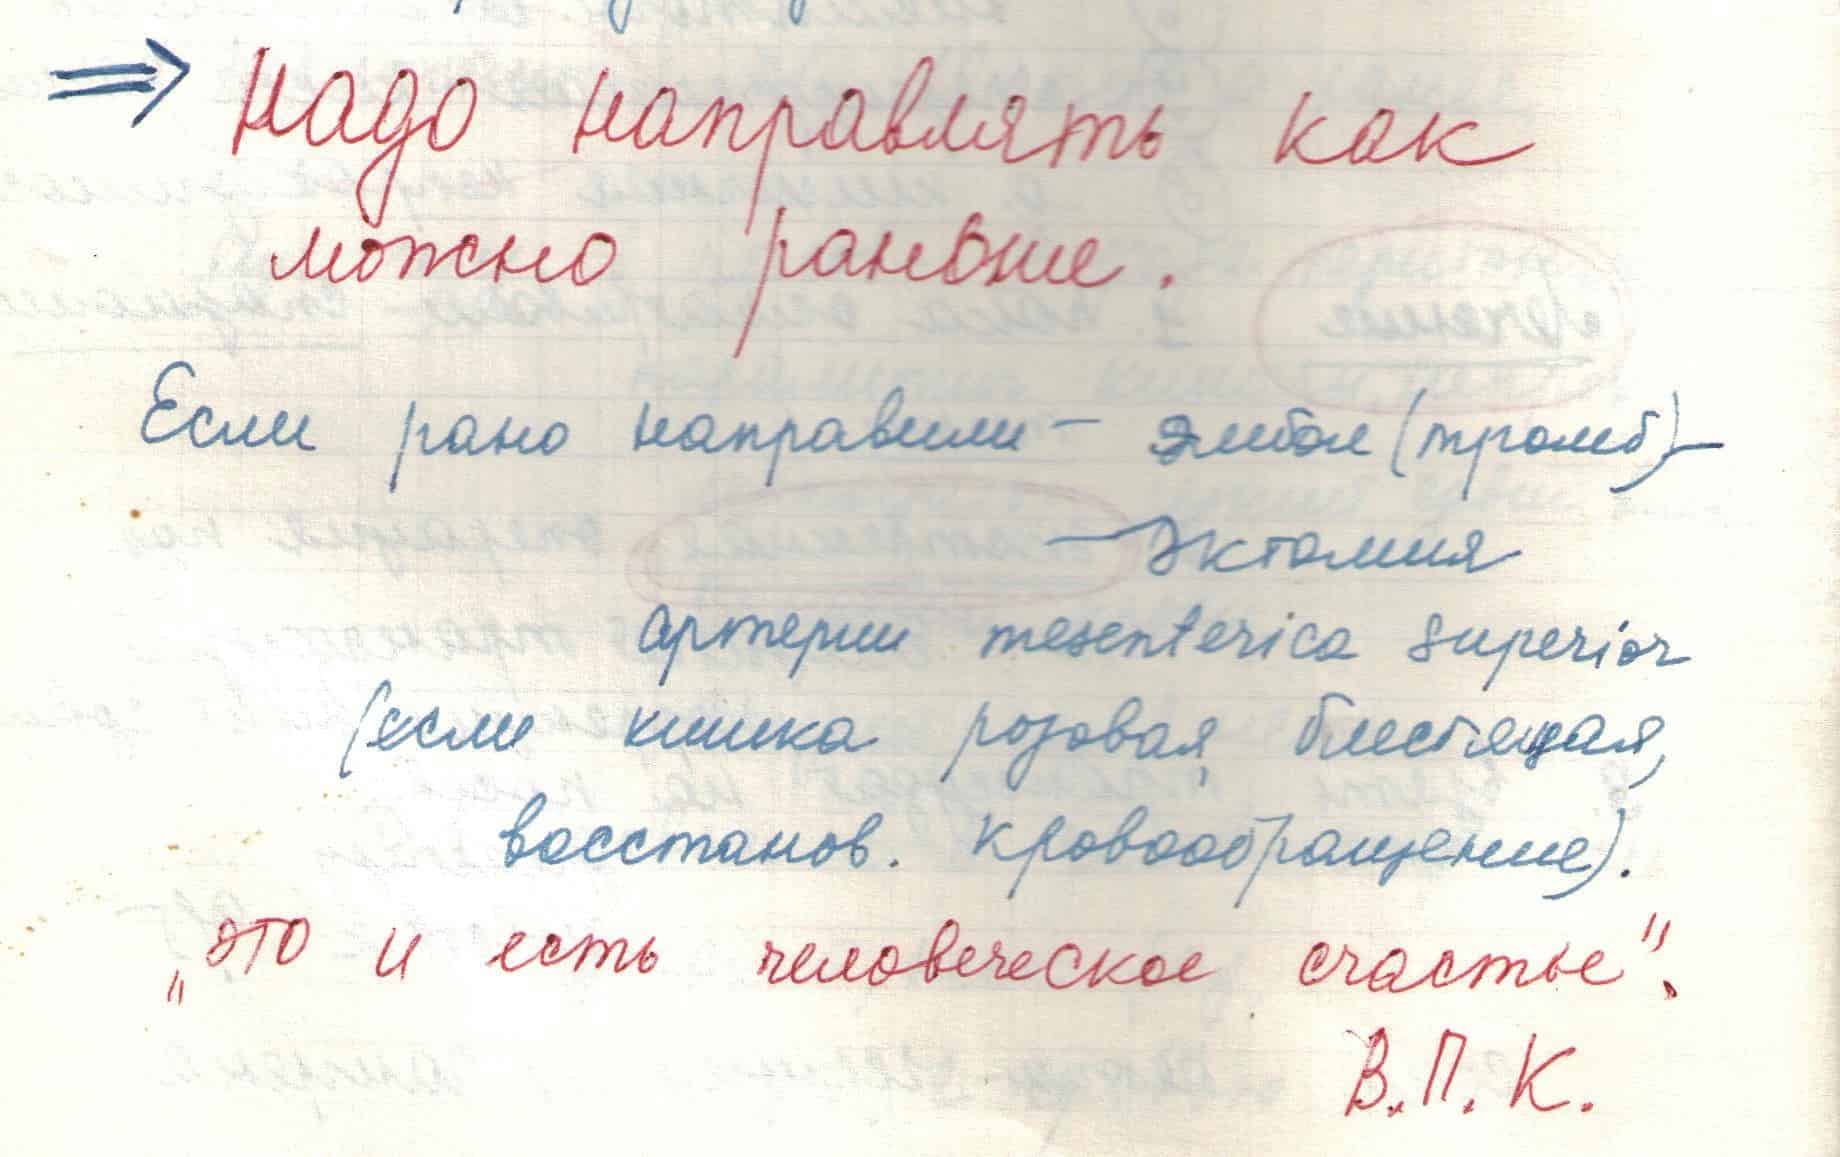 ⇒ Надо направлять как
можно раньше.
Если рано направили – эмбол (тромб) –
– эктомия
артерии mesenterica superior
(если кишка розовая, блестящая,
восстанов. кровообращение).
„Это и есть человеческое счастье".
В.П.К.